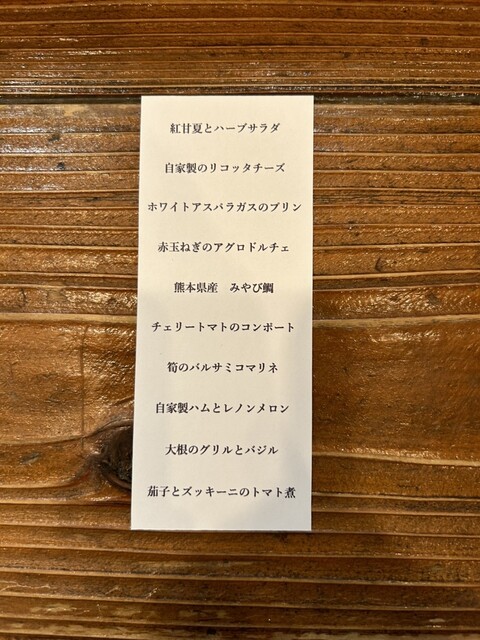 紅甘夏とハーブサラダ
自家製のリコッタチーズ
ホワイトアスパラガスのプリン
赤玉ねぎのアグロドルチェ
熊本県産　みやび鯛
チェリートマトのコンポート
筍のバルサミコマリネ
自家製ハムとレノンメロン
大根のグリルとバジル
茄子とズッキーニのトマト煮